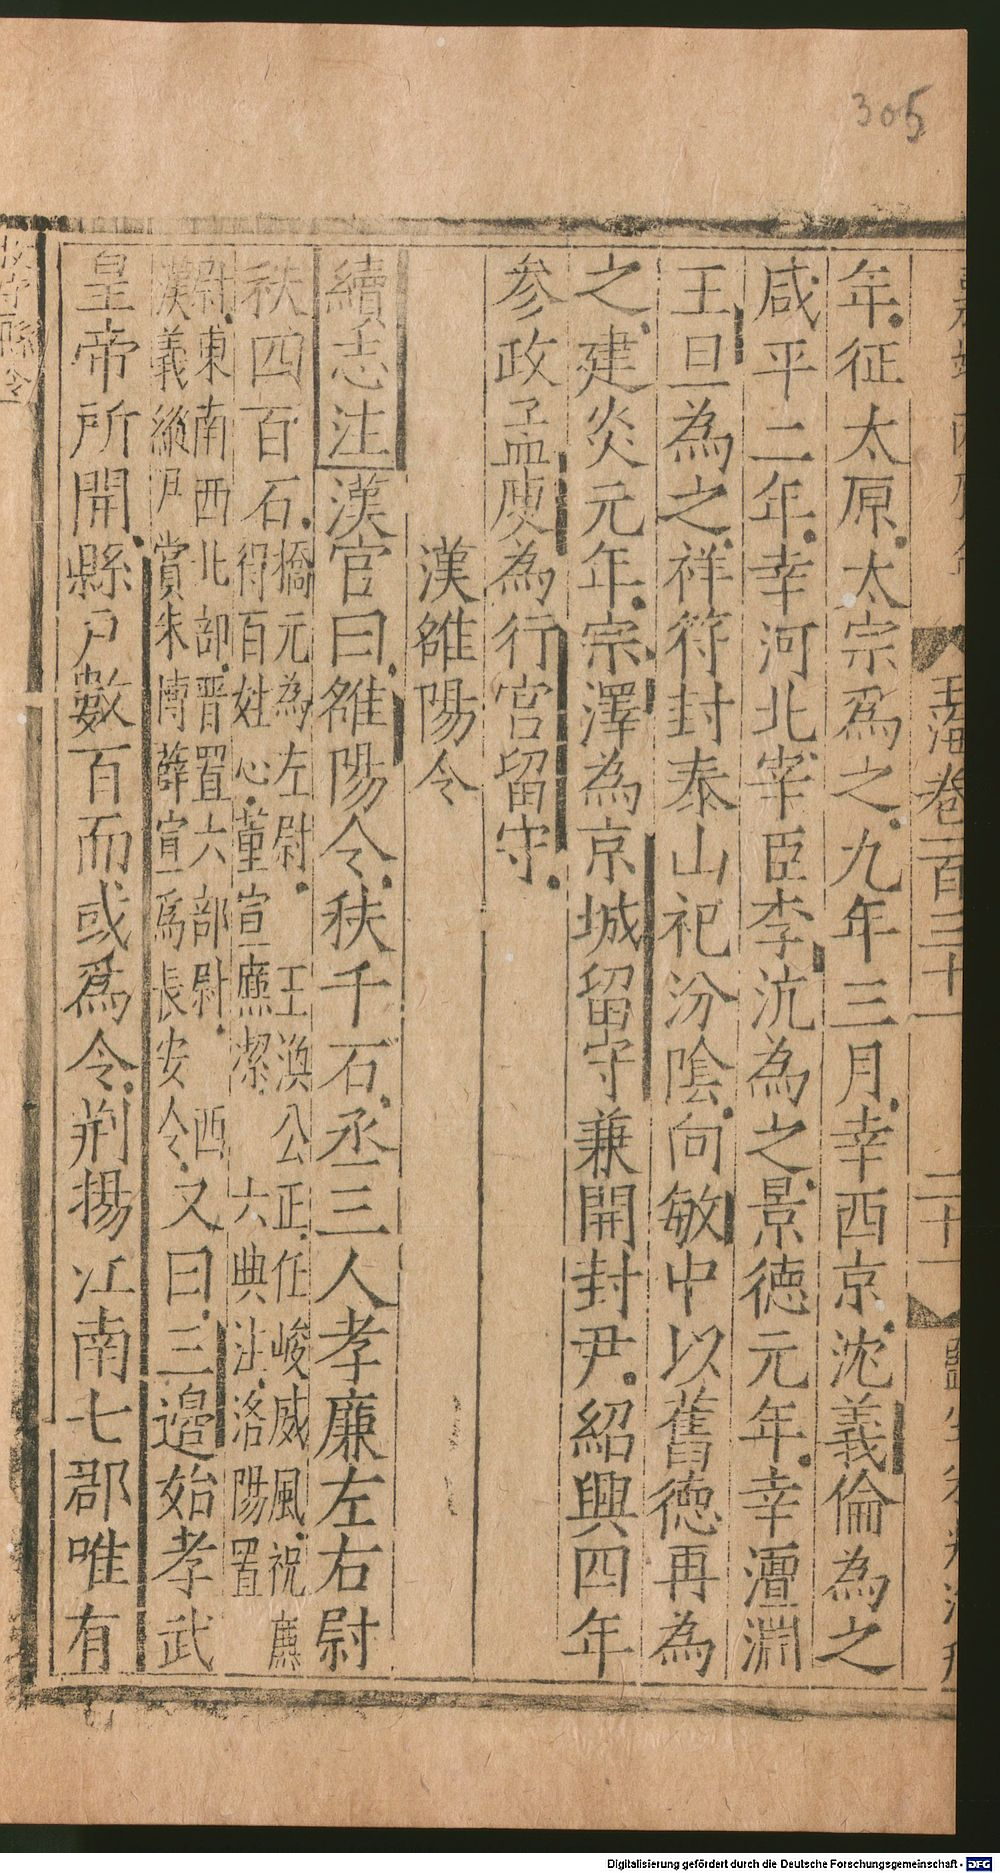 305
玉海卷一百三十一 二十一
年征太原太宗爲之九年三月幸西京沈義倫為之
咸平二年幸河北宰臣李沆為之景德元年幸澶淵
王旦為之祥符封泰山祀汾陰向敏中以舊德再為
之建炎元年宗澤為京城留守兼開封尹紹興四年
参政孟庾為行宮留守
漢雒陽令
續志注漢官曰雒陽令秩千石丞三人孝廉左右尉
秩四百石橋元為左尉 王渙公正任峻威風祝廉
得百姓心董宣廉潔 六典注洛陽置
尉東南西北部晋置六部尉 西
漢義縱尹賞朱博薛宣爲長安令又曰三邉始孝武
皇帝所開縣户數百而或爲令荆揚江南七郡唯有
守縣令
Digitalisierung gefördert durch die Deutsche Forschungsgemeinschaft - DFG